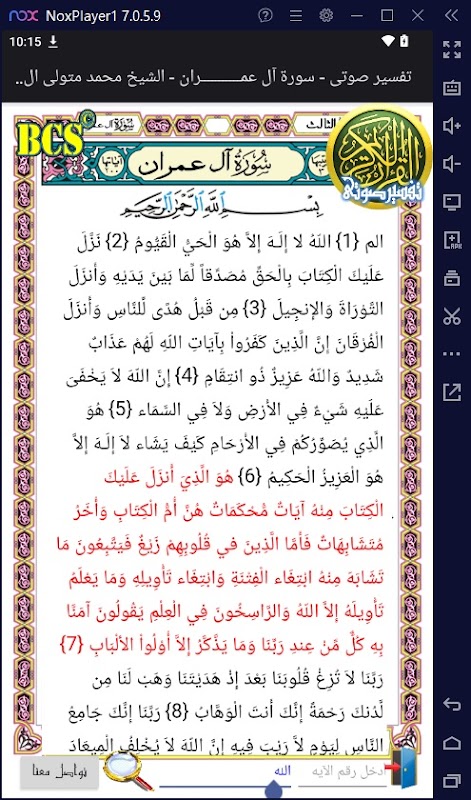 NoxPlayer1 7.0.5.9
10:15
تفسير صوتى - سورة آل عمـــــــران - الشيخ محمد متولى ال..
BCS
سورة آل عمران
الثالث
سُورَةُ آل عمران
القرآن
تفسير صوتى
بِسْمِ اللَّهِ الرَّحْمَٰنِ الرَّحِيمِ
الم {1} اللّهُ لا إِلَـهَ إِلاَّ هُوَ الْحَيُّ الْقَيُّومُ {2} نَزَّلَ
عَلَيْكَ الْكِتَابَ بِالْحَقِّ مُصَدِّقاً لِّمَا بَيْنَ يَدَيْهِ وَأَنزَلَ
التَّوْرَاةَ وَالإِنجِيلَ {3} مِن قَبْلُ هُدًى لِّلنَّاسِ وَأَنزَلَ
الْفُرْقَانَ إِنَّ الَّذِينَ كَفَرُواْ بِآيَاتِ اللّهِ لَهُمْ عَذَابٌ
شَدِيدٌ وَاللّهُ عَزِيزٌ ذُو انتِقَامٍ {4} إِنَّ اللّهَ لاَ يَخْفَىَ
عَلَيْهِ شَيْءٌ فِي الأَرْضِ وَلاَ فِي السَّمَاء {5} هُوَ
الَّذِي يُصَوِّرُكُمْ فِي الأَرْحَامِ كَيْفَ يَشَاء لاَ إِلَـهَ إِلاَّ
هُوَ الْعَزِيزُ الْحَكِيمُ {6} هُوَ الَّذِيَ أَنزَلَ عَلَيْكَ
الْكِتَابَ مِنْهُ آيَاتٌ مُّحْكَمَاتٌ هُنَّ أُمُّ الْكِتَابِ وَأُخَرُ
مُتَشَابِهَاتٌ فَأَمَّا الَّذِينَ في قُلُوبِهِمْ زَيْغٌ فَيَتَّبِعُونَ مَا
تَشَابَهَ مِنْهُ ابْتِغَاء الْفِتْنَةِ وَابْتِغَاء تَأْوِيلِهِ وَمَا يَعْلَمُ
تَأْوِيلَهُ إِلاَّ اللّهُ وَالرَّاسِخُونَ فِي الْعِلْمِ يَقُولُونَ آمَنَّا
بِهِ كُلٌّ مِّنْ عِندِ رَبِّنَا وَمَا يَذَّكَّرُ إِلاَّ أُوْلُواْ الألْبَابِ {7}
رَبَّنَا لاَ تُزِغْ قُلُوبَنَا بَعْدَ إِذْ هَدَيْتَنَا وَهَبْ لَنَا مِن
لَّدُنكَ رَحْمَةً إِنَّكَ أَنتَ الْوَهَّابُ {8} رَبَّنَا إِنَّكَ جَامِعُ
النَّاسِ لِيَوْمٍ لاَّ رَيْبَ فِيهِ إِنَّ اللّهَ لاَ يُخْلِفُ الْمِيعَادَ
ادخل رقم الآيه
الله
تواصل معنا